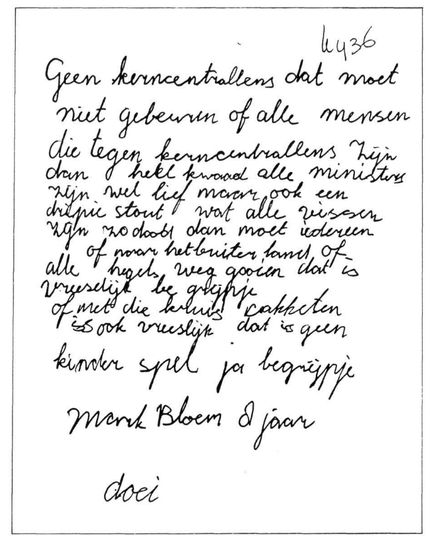 k436
Geen kerncentrallens dat moet
niet gebeuren of alle mensen
die tegen kerncentrallens zijn
dan hekl kwaad alle ministers
zijn wel lief maar ook een
stout wat alle vissen
zijn zo dood dan moet iedereen
of naar het buiter land of
alle hegels weg gooien dat is
vreeselijk be grijpje
of met die kruis rakketen
is ook vreeslijk dat is geen
kinder spel ja begrijpje
Mark Bloem 8 jaar
doei